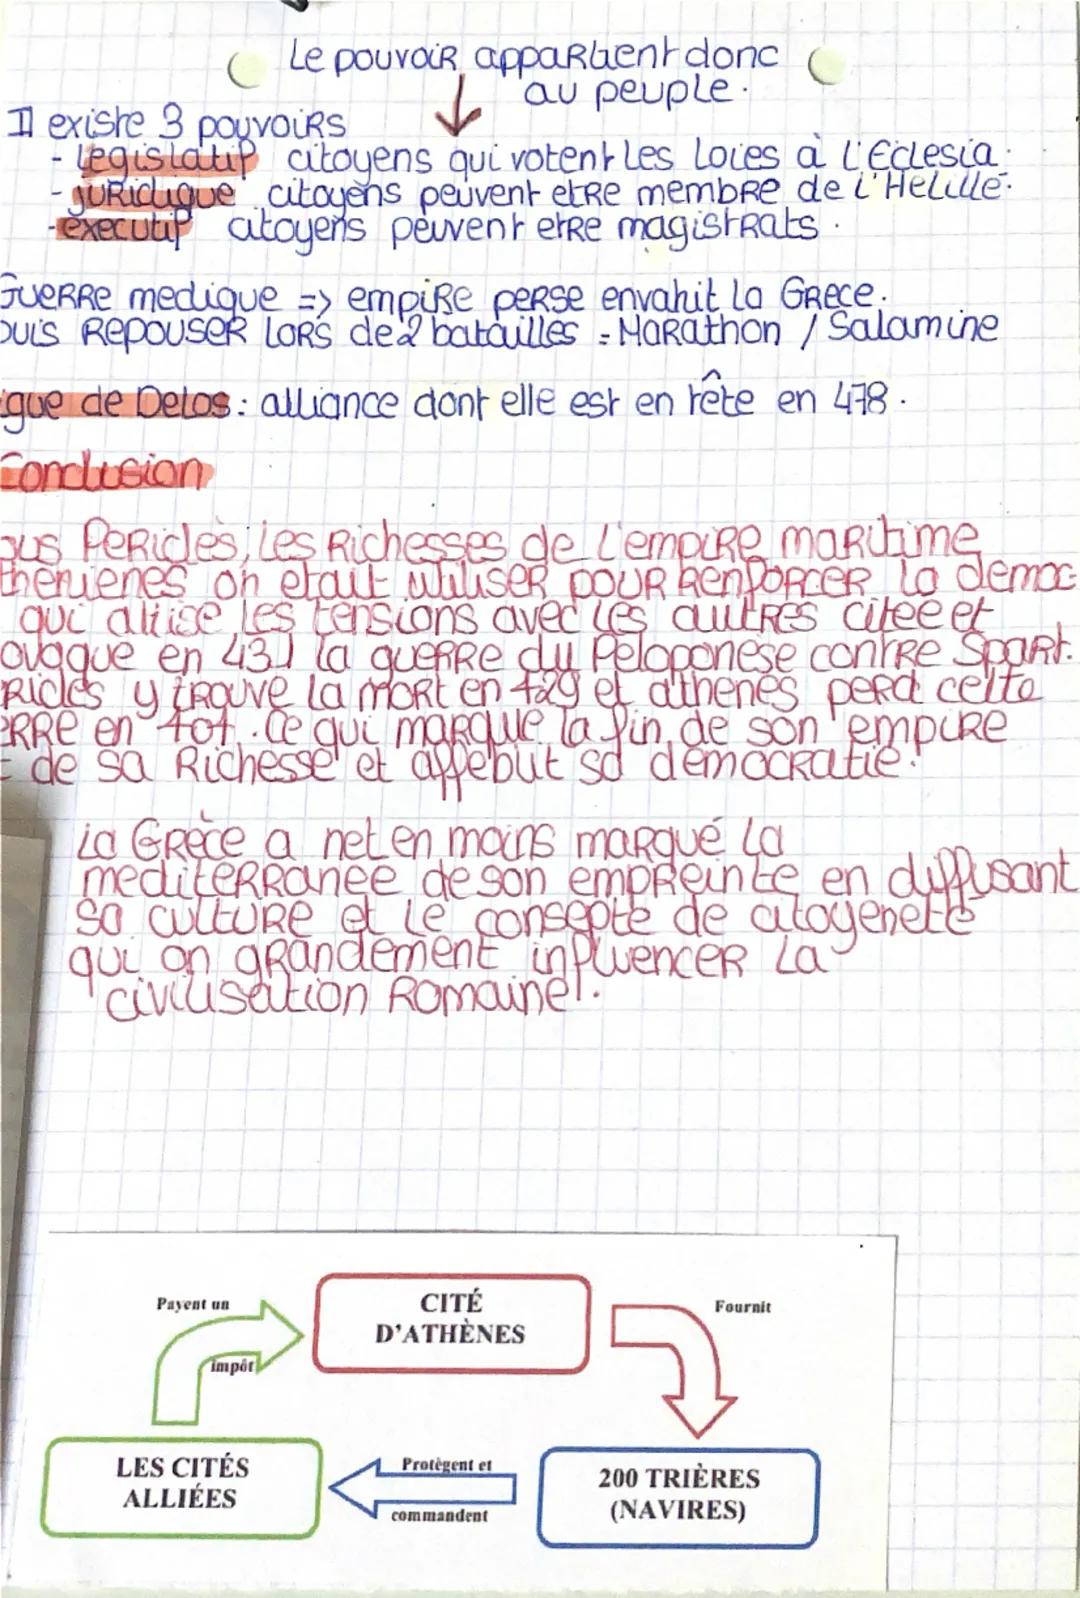 Le pouvoir appartient donc
au peuple.
Il existe 3 pouvoirs
- Legislatif citoyens qui votent les loies à l'Eclesia.
- juridique citoyens peuvent etre membre de l'Helillé.
- executif citoyens peuvent etre magistrats.
Guerre medique => empire perse envahit la Grece.
puis Repouser lors de 2 batailles = Marathon / Salamine
igue de Delos : alliance dont elle est en tête en 478.
Conclusion
ous Pericles, les Richesses de l'empire maritime
thenienes on etait utiliser pour renforcer la democ
qui attise les tensions avec les autres citee et
ovaque en 431 la guerre du Peloponese contre Spart.
Ricles y trouve la mort en 429 et d'athenes perd cette
erre en 404. Ce qui marque la fin de son empire
t de sa Richesse et affebut sa democratie.
La Grèce a net en moins marqué la
mediterranee de son empreinte en diffusant
sa culture et le consepte de citoyeneté
qui on grandement influencer la
civilisation Romaine.
Payent un
impôt
CITÉ
D'ATHÈNES
Fournit
LES CITÉS
ALLIÉES
Protègent et
commandent
200 TRIÈRES
(NAVIRES)